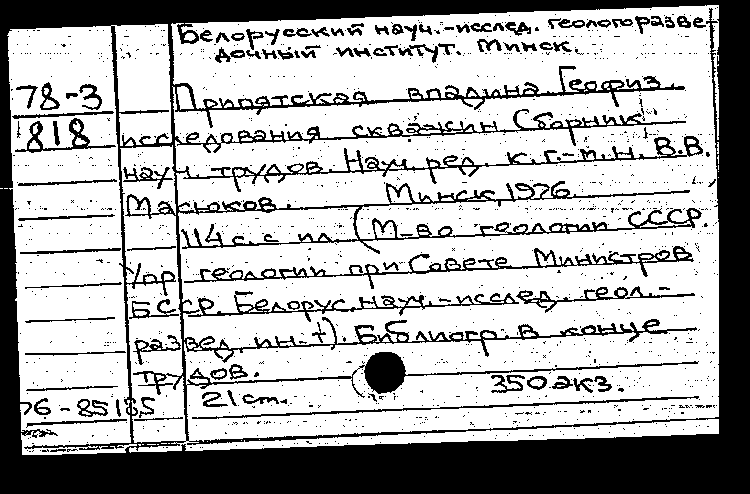 Белорусский науч.-исслед. геологоразве-
дочный институт. Минск.
78-3 Припятская впадина. Геофиз.
818 исследования скважин. Сборник
науч. трудов. Науч. ред. к.г.-м.н. В.В.
Масюков. Минск, 1976.
114 с. с ил. (М-во геологии СССР.
Упр. геологии при Совете Министров
БССР. Белорус. науч.-исслед. геол.-
развед. ин-т). Библиогр. в конце
трудов.
76-85185 21 ст. 350 экз.